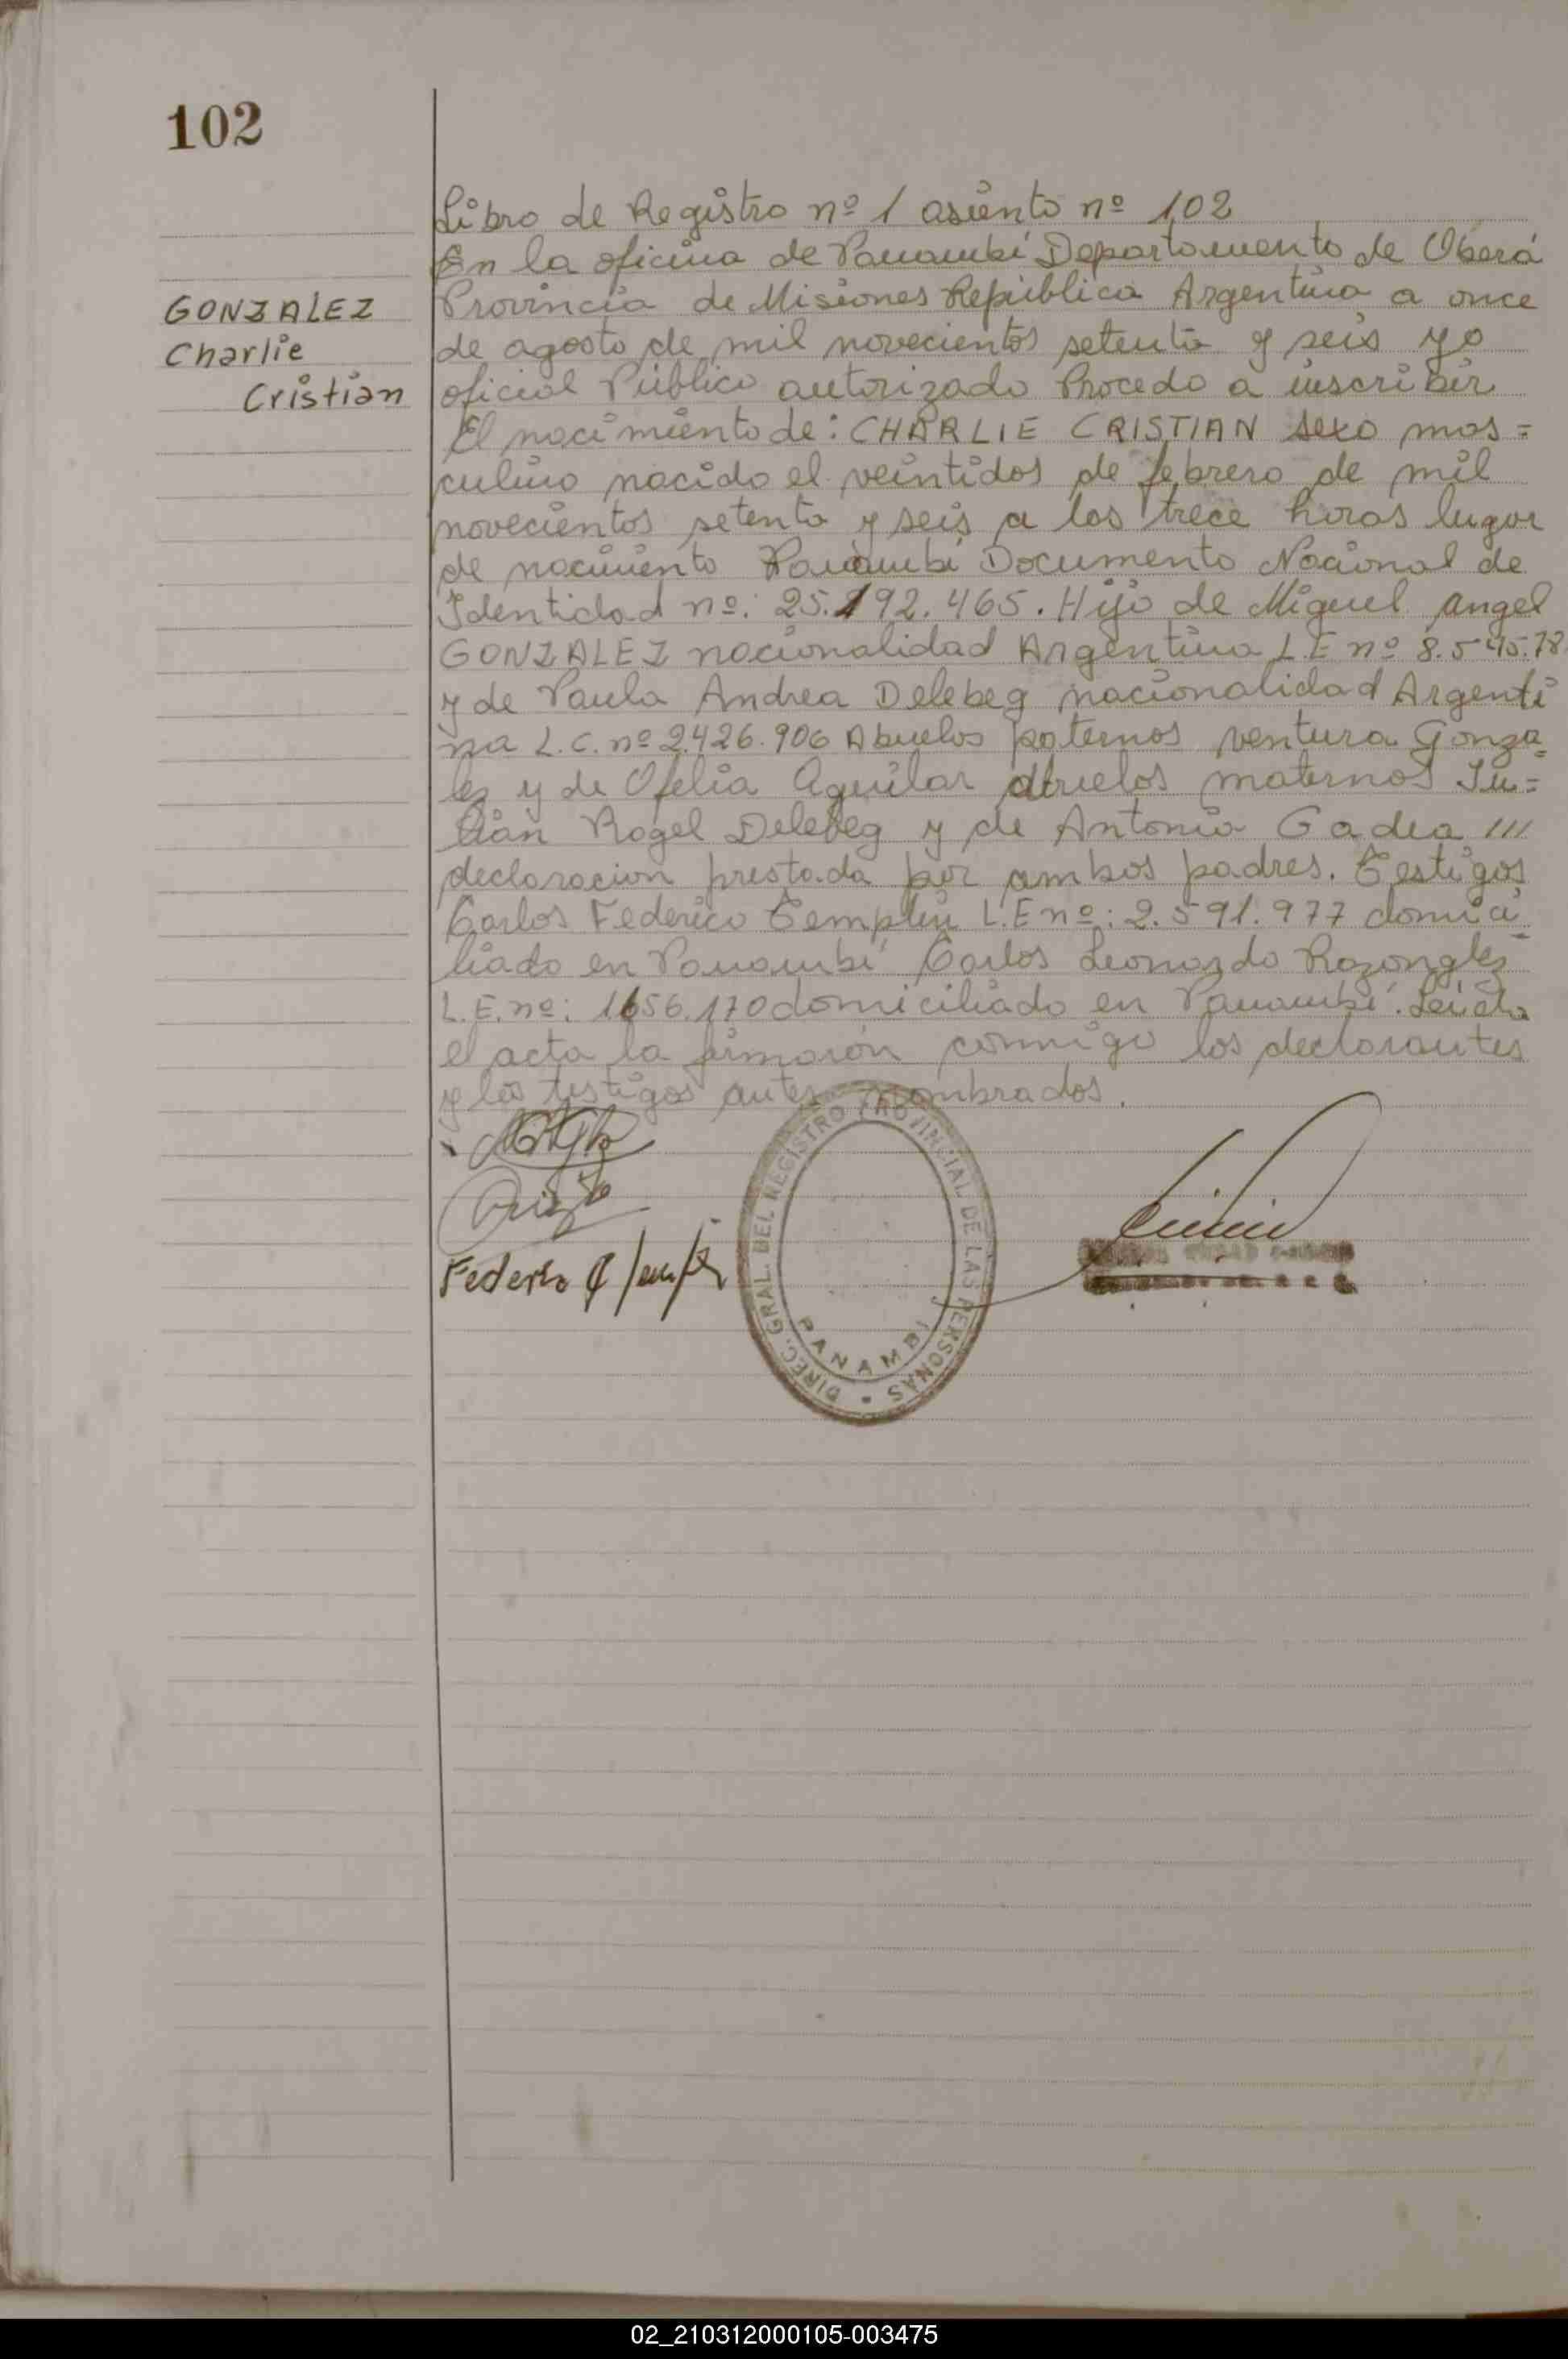 102
Libro de Registro nº 1 asiento nº 102
En la oficina de Panambí Departamento de Oberá
GONZALEZ
Provincia de Misiones República Argentina a once
Charlie
de agosto de mil novecientos setenta y seis yo
Cristian
oficial Público autorizado Procedo a inscribir
El nacimiento de: CHARLIE CRISTIAN sexo mas=
culino nacido el veintidos de febrero de mil
novecientos setenta y seis a las trece horas lugar
de nacimiento Panambí Documento Nacional de
Identidad nº: 25.192.465. Hijo de Miguel angel
GONZALEZ nacionalidad Argentina L E nº 8.545.78
y de Paula Andrea Delebeg nacionalidad Argenti
na L.C. nº 2.426.906 Abuelos paternos ventura Gonza=
lez y de Ofelia Aguilar abuelos maternos Ju=
lian Rogel Delebeg y de Antonia Gadea ///
declaracion prestada por ambos padres. Testigos
Carlos Federico Templin L.E nº: 2.591.977 domici
liado en Panambí Carlos Leonardo
L.E. nº: 1656.170 domiciliado en Panambí. Leida
el acta la firmarón conmigo los declarantes
y los testigos antes nombrados.
DIREC. GRAL. DEL REGISTRO PROVINCIAL DE LAS PERSONAS
PANAMBI
02_210312000105-003475